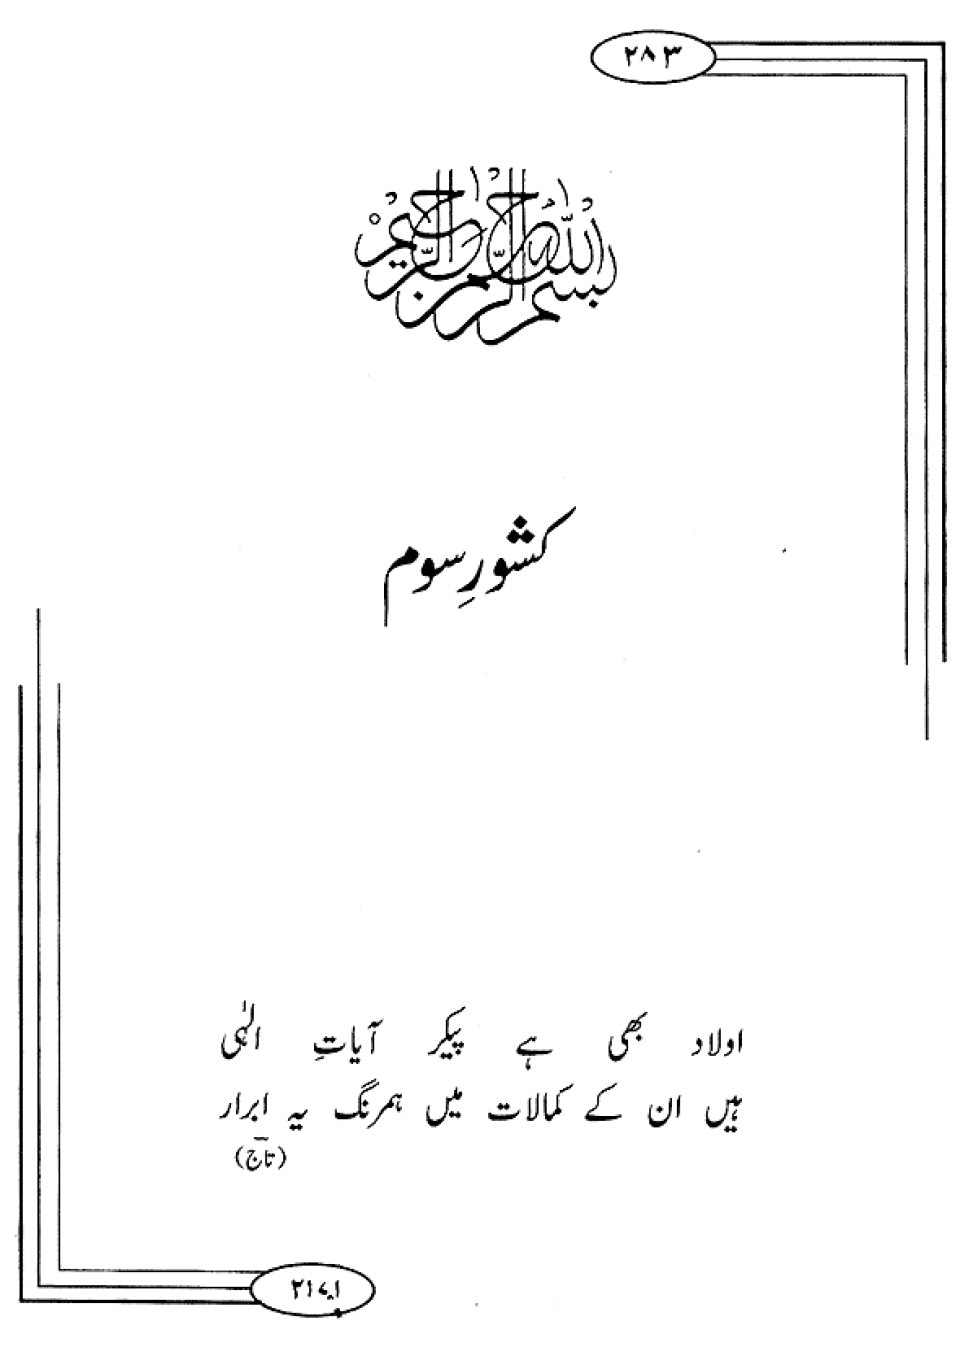 ۲۸۳
بسم اللہ الرحمن الرحیم
کشورِ سوم
اولاد بھی ہے پیکر آیاتِ الٰہی
ہیں ان کے کمالات میں ہمرنگ یہ ابرار
(تاجؔ)